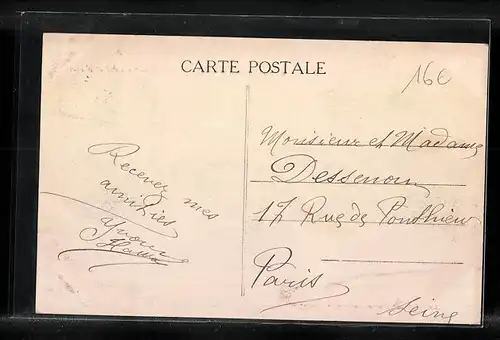 CARTE POSTALE
16€
Recever mes
amitiés
Monsieur et Madame
Dessenon
17 Rue de Ponthieu
Paris
Seine